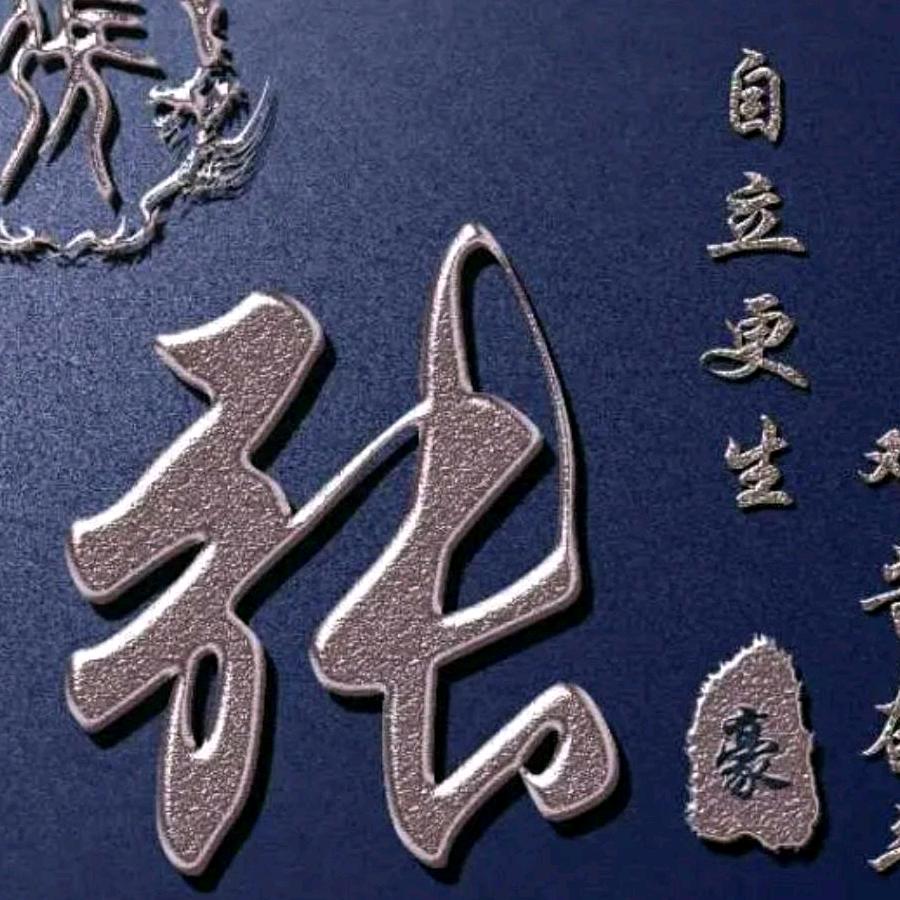 张
自立更生
豪